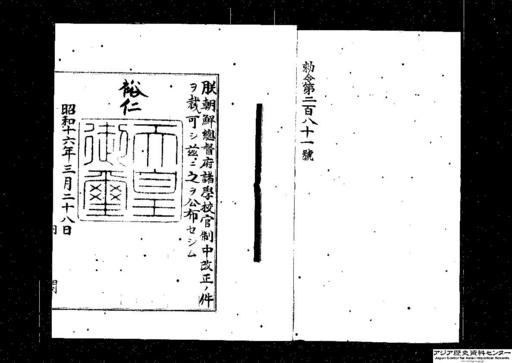 勅令第二百八十一號
朕朝鮮總督府諸學校官制中改正ノ件
ヲ裁可シ茲ニ之ヲ公布セシム
裕仁
天皇
御璽
昭和十六年三月二十八日
アジア歴史資料センター
Japan Center for Asian Historical Records